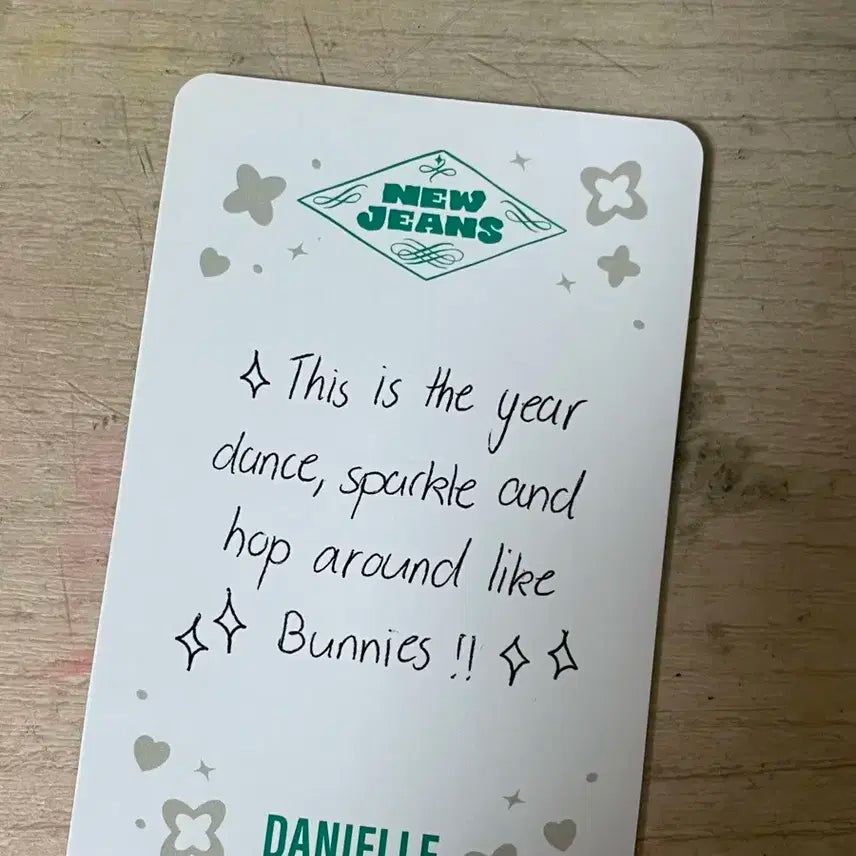 NEW
JEANS
This is the year
dance, sparkle and
hop around like
Bunnies !!
DANIELLE